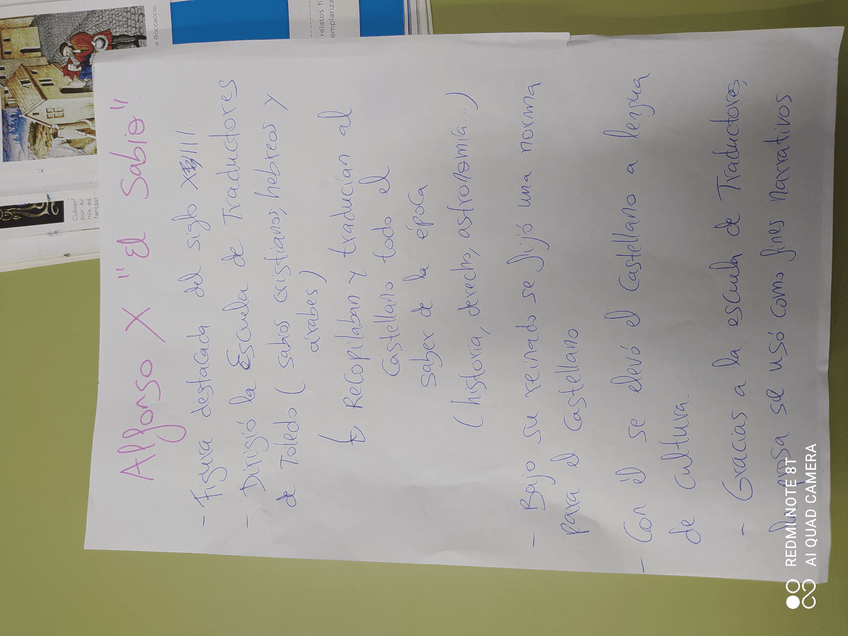 Alfonso X "El Sabio"
- Figura destacada del siglo XIII.
- Dirigió la Escuela de Traductores
de Toledo (sabios cristianos, hebreos y
árabes)
Recopilaban y traducían al
Castellano todo el
saber de la época
(historia, derecho, astronomía...)
- Bajo su reinado se fijó una norma
para el Castellano
- Con él se elevó el Castellano a lengua
de cultura.
- Gracias a la escuela de Traductores,
la prosa se usó como fines narrativos
REDMI NOTE 8T
AI QUAD CAMERA